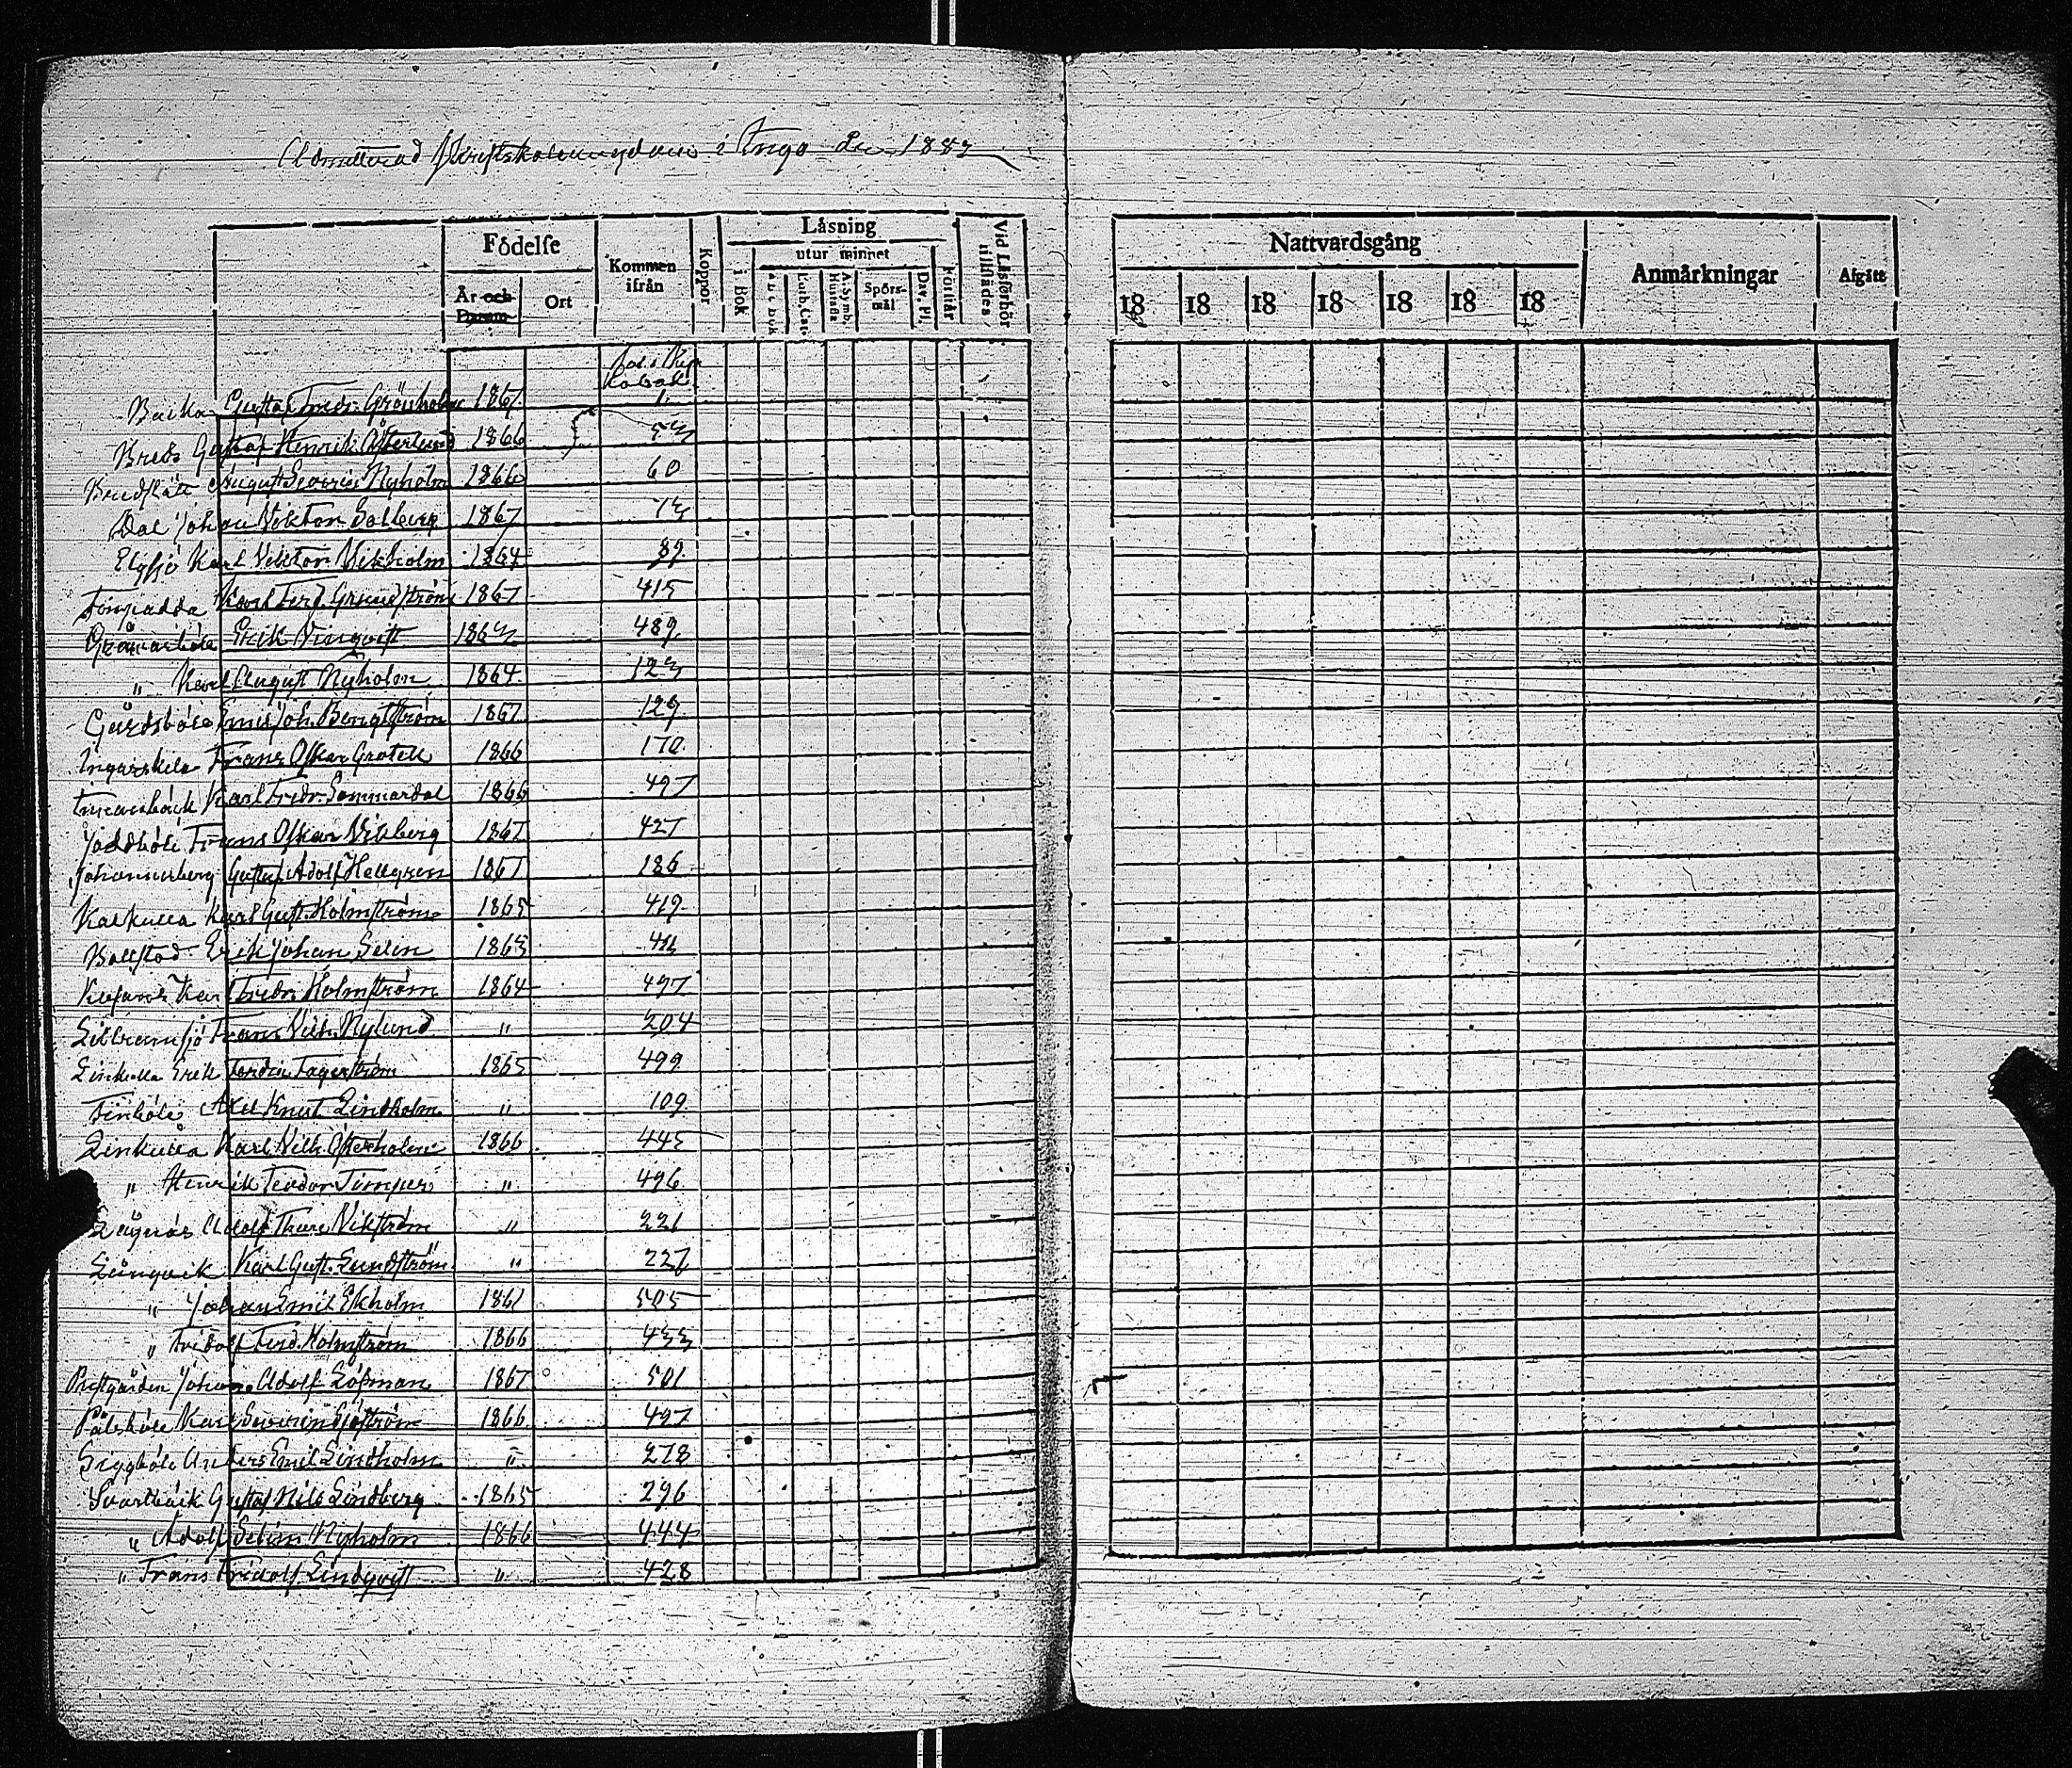 Admitterad Skriftskoleungdom i Ingo år 1883
Födelse
År och Datum
Ort
Kommen ifrån
Koppor
Läsning
i Bok
utur minnet
A B C Bok
Luth. Cat.
A. Symb. Hustafla
Spörs-mål
Dav. Ps.
Förstår
Vid Läsförhör tillstädes
Nattvardsgång
18 18 18 18 18 18 18
Anmärkningar
Afgått
Gustaf Fredr. Grönholm 1867 1
Gustaf Henrik Österlund 1866 53
August Severin Nyholm 1866 60
Dal Johan Viktor Solberg 1867 73
Elgsjö Karl Viktor Vikholm 1864 89
Finpadda Karl Ferd. Grundström 1867 415
Erik Vinqvist 489
" Karl August Nyholm 1864 123
Emil Joh. Bengtström 1867 129
Ingarskila Frans Oskar Grotell 1866 170
Karl Fredr. Sommardal 1866 497
Joddböle Frans Oskar Vikberg 1867 427
Johannesberg Gustaf Adolf Hellgren 1867 186
Kalkulla Karl Gust. Holmström 1865 419
Erik Johan Selin 1865
Karl Fredr. Holmström 1864 497
Frans Vilh. Nylund " 204
Linkulla Erik Fagerström 1865 499
Finböle Axel Knut Lindholm " 109
Linkulla Karl Vilh. Österholm 1866 445
" Henrik Teodor Timper " 496
Lågnäs Adolf Ture Vikström " 221
Långvik Karl Gust. Sundström " 227
" Johan Emil Ekholm 1867 505
" Fridolf Ferd. Holmström 1866 433
Prestgården Johan Adolf Löfman 1867 501
Pålsböle Karl Severin Sjöström 1866 497
Siggböle Anders Emil Lindholm " 278
Svartbäck Gustaf Nils Lindberg 1865 296
" Adolf Selim Nyholm 1866 444
" Frans Fridolf Lindqvist " 428